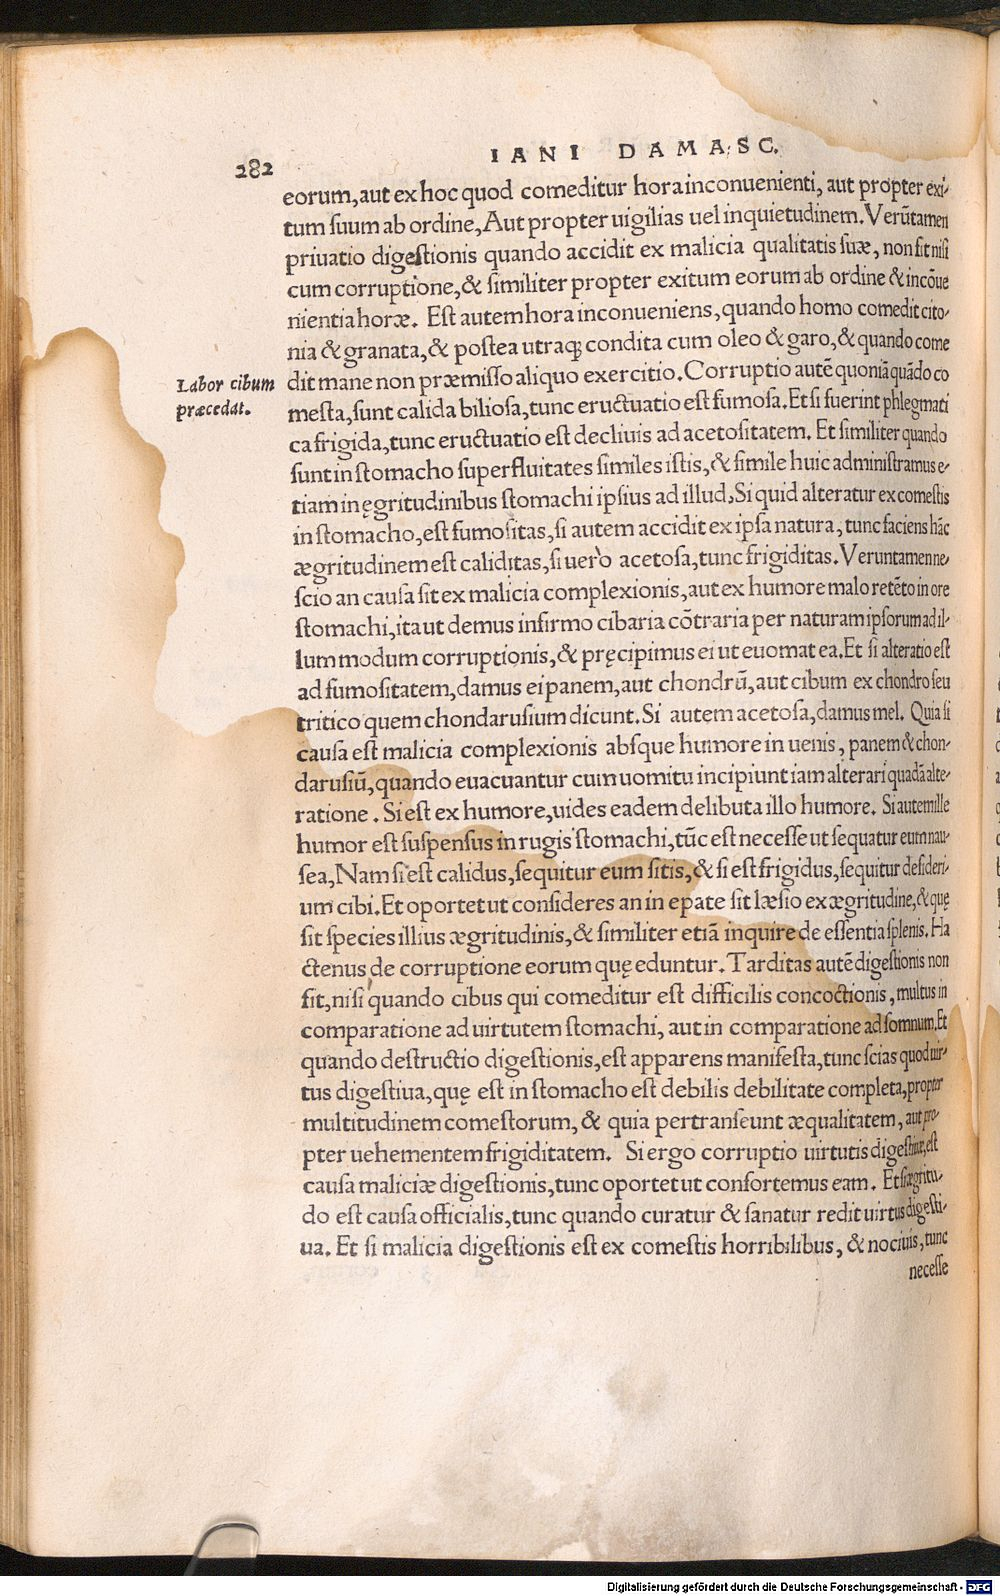 282
IANI DAMASC.
eorum, aut ex hoc quod comeditur hora inconuenienti, aut propter exi-
tum ſuum ab ordine, Aut propter uigilias uel inquietudinem. Verũtamen
priuatio digeſtionis quando accidit ex malicia qualitatis ſuæ, non fit niſi
cum corruptione, & ſimiliter propter exitum eorum ab ordine & incõue
nientia horæ. Eſt autem hora inconueniens, quando homo comedit cito-
nia & granata, & poſtea utraq; condita cum oleo & garo, & quando come
Labor cibum
præcedat.
dit mane non præmiſſo aliquo exercitio. Corruptio autẽ quoniã quãdo co
meſta, ſunt calida bilioſa, tunc eructuatio eſt fumoſa. Et ſi fuerint phlegmati
ca frigida, tunc eructuatio eſt decliuis ad acetoſitatem. Et ſimiliter quando
ſunt in ſtomacho ſuperfluitates ſimiles iſtis, & ſimile huic adminiſtramus e-
tiam in ęgritudinibus ſtomachi ipſius ad illud. Si quid alteratur ex comeſtis
in ſtomacho, eſt fumoſitas, ſi autem accidit ex ipſa natura, tunc faciens hãc
ægritudinem eſt caliditas, ſi uero acetoſa, tunc frigiditas. Veruntamen ne-
ſcio an cauſa ſit ex malicia complexionis, aut ex humore malo retẽto in ore
ſtomachi, ita ut demus infirmo cibaria cõtraria per naturam ipſorum ad il-
lum modum corruptionis, & pręcipimus ei ut euomat ea. Et ſi alteratio eſt
ad fumoſitatem, damus ei panem, aut chondrũ, aut cibum ex chondro ſeu
tritico quem chondaruſium dicunt. Si autem acetoſa, damus mel. Quia ſi
cauſa eſt malicia complexionis abſque humore in uenis, panem & chon-
daruſiũ, quando euacuantur cum uomitu incipiunt iam alterari quadã alte-
ratione. Si eſt ex humore, uides eadem delibuta illo humore. Si autem ille
humor eſt ſuſpenſus in rugis ſtomachi, tũc eſt neceſſe ut ſequatur eum nau-
ſea, Nam ſi eſt calidus, ſequitur eum ſitis, & ſi eſt frigidus, ſequitur deſideri-
um cibi. Et oportet ut conſideres an in epate ſit læſio ex ægritudine, & quę
ſit ſpecies illius ægritudinis, & ſimiliter etiã inquire de eſſentia ſplenis. Ha
ctenus de corruptione eorum quę eduntur. Tarditas autẽ digeſtionis non
fit, niſi quando cibus qui comeditur eſt difficilis concoctionis, multus in
comparatione ad uirtutem ſtomachi, aut in comparatione ad ſomnum. Et
quando deſtructio digeſtionis, eſt apparens manifeſta, tunc ſcias quod uir-
tus digeſtiua, quę eſt in ſtomacho eſt debilis debilitate completa, propter
multitudinem comeſtorum, & quia pertranſeunt æqualitatem, aut pro-
pter uehementem frigiditatem. Si ergo corruptio uirtutis digeſtiuæ, eſt
cauſa maliciæ digeſtionis, tunc oportet ut confortemus eam. Et ſi ægritu-
do eſt cauſa officialis, tunc quando curatur & ſanatur redit uirtus digeſti-
ua. Et ſi malicia digeſtionis eſt ex comeſtis horribilibus, & nociuis, tunc
neceſſe
Digitalisierung gefördert durch die Deutsche Forschungsgemeinschaft - DFG